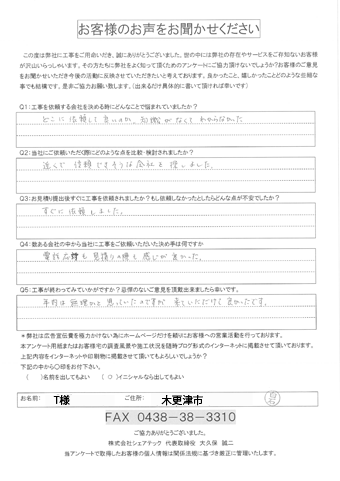 お客様のお声をお聞かせください
この度は弊社に工事をご用命いただき、誠にありがとうございました。世の中には弊社の存在やサービスをご存知ないお客様
が沢山いらっしゃいます。その方たちに弊社をよく知って頂くためのアンケートにご協力頂けないでしょうか？お客様のご意見
をお聞かせいただき今後の活動に反映させていただきたいと考えております。良かったこと、嬉しかったことどのような些細な
事でも結構です。是非ご協力お願い致します。（出来るだけ具体的に書いて頂ければ幸いです）
Q1：工事を依頼する会社を決める時にどんなことで悩まれていましたか？
どこに依頼して良いのか、知識がなくてわからなかった
Q2：当社にご依頼いただく際にどのような点を比較・検討されましたか？
依頼できそうな会社を探しました。
Q3：お見積り提出後すぐに工事を依頼されましたか？もし依頼しなかったとしたらどんな点が不安でしたか？
すぐに依頼しました。
Q4：数ある会社の中から当社に工事をご依頼いただいた決め手は何ですか
電話応対も見積りの時も感じが良かった。
Q5：工事が終わってみていかがですか？忌憚のないご意見を頂戴出来ましたら幸いです。
無理かと思っていたのですが 来ていただけて良かったです。
＊弊社は広告宣伝費を極力かけない為にホームページだけを頼りお客様への営業活動を行っております。
本アンケート用紙またはお客様宅の調査風景や施工状況を随時ブログ形式のインターネットに掲載させて頂いております。
上記内容をインターネットや印刷物に掲載させて頂いてもよろしいでしょうか？
下記の中から〇印をお付下さい。
（ ）名前を出してもよい （ ○ ）イニシャルなら出してもよい
お名前： T様 ご住所： 木更津市
FAX 0438-38-3310
ご協力ありがとうございました。
株式会社シェアテック 代表取締役 大久保 誠二
当アンケートで取得したお客様の個人情報は関係法規に基づき厳正に管理いたします。